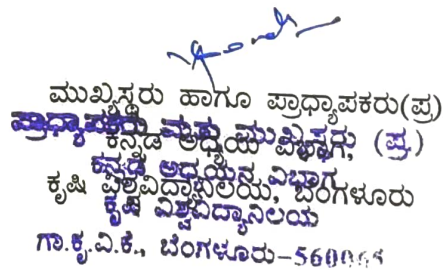 ಮುಖ್ಯಸ್ಥರು ಹಾಗೂ ಪ್ರಾಧ್ಯಾಪಕರು(ಪ್ರ)
ಪ್ರಾಧ್ಯಾಪಕರು ಮತ್ತು ಮುಖ್ಯಸ್ಥರು (ಪ್ರ)
ಕನ್ನಡ ಅಧ್ಯಯನ ವಿಭಾಗ,
ಕನ್ನಡ ಅಧ್ಯಯನ ವಿಭಾಗ
ಕೃಷಿ ವಿಶ್ವವಿದ್ಯಾನಿಲಯ, ಬೆಂಗಳೂರು
ಕೃಷಿ ವಿಶ್ವವಿದ್ಯಾನಿಲಯ
ಗಾ.ಕೃ.ವಿ.ಕೆ., ಬೆಂಗಳೂರು-560065